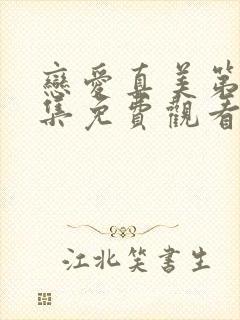 戀愛真美第
集免費觀看
江北笑書生